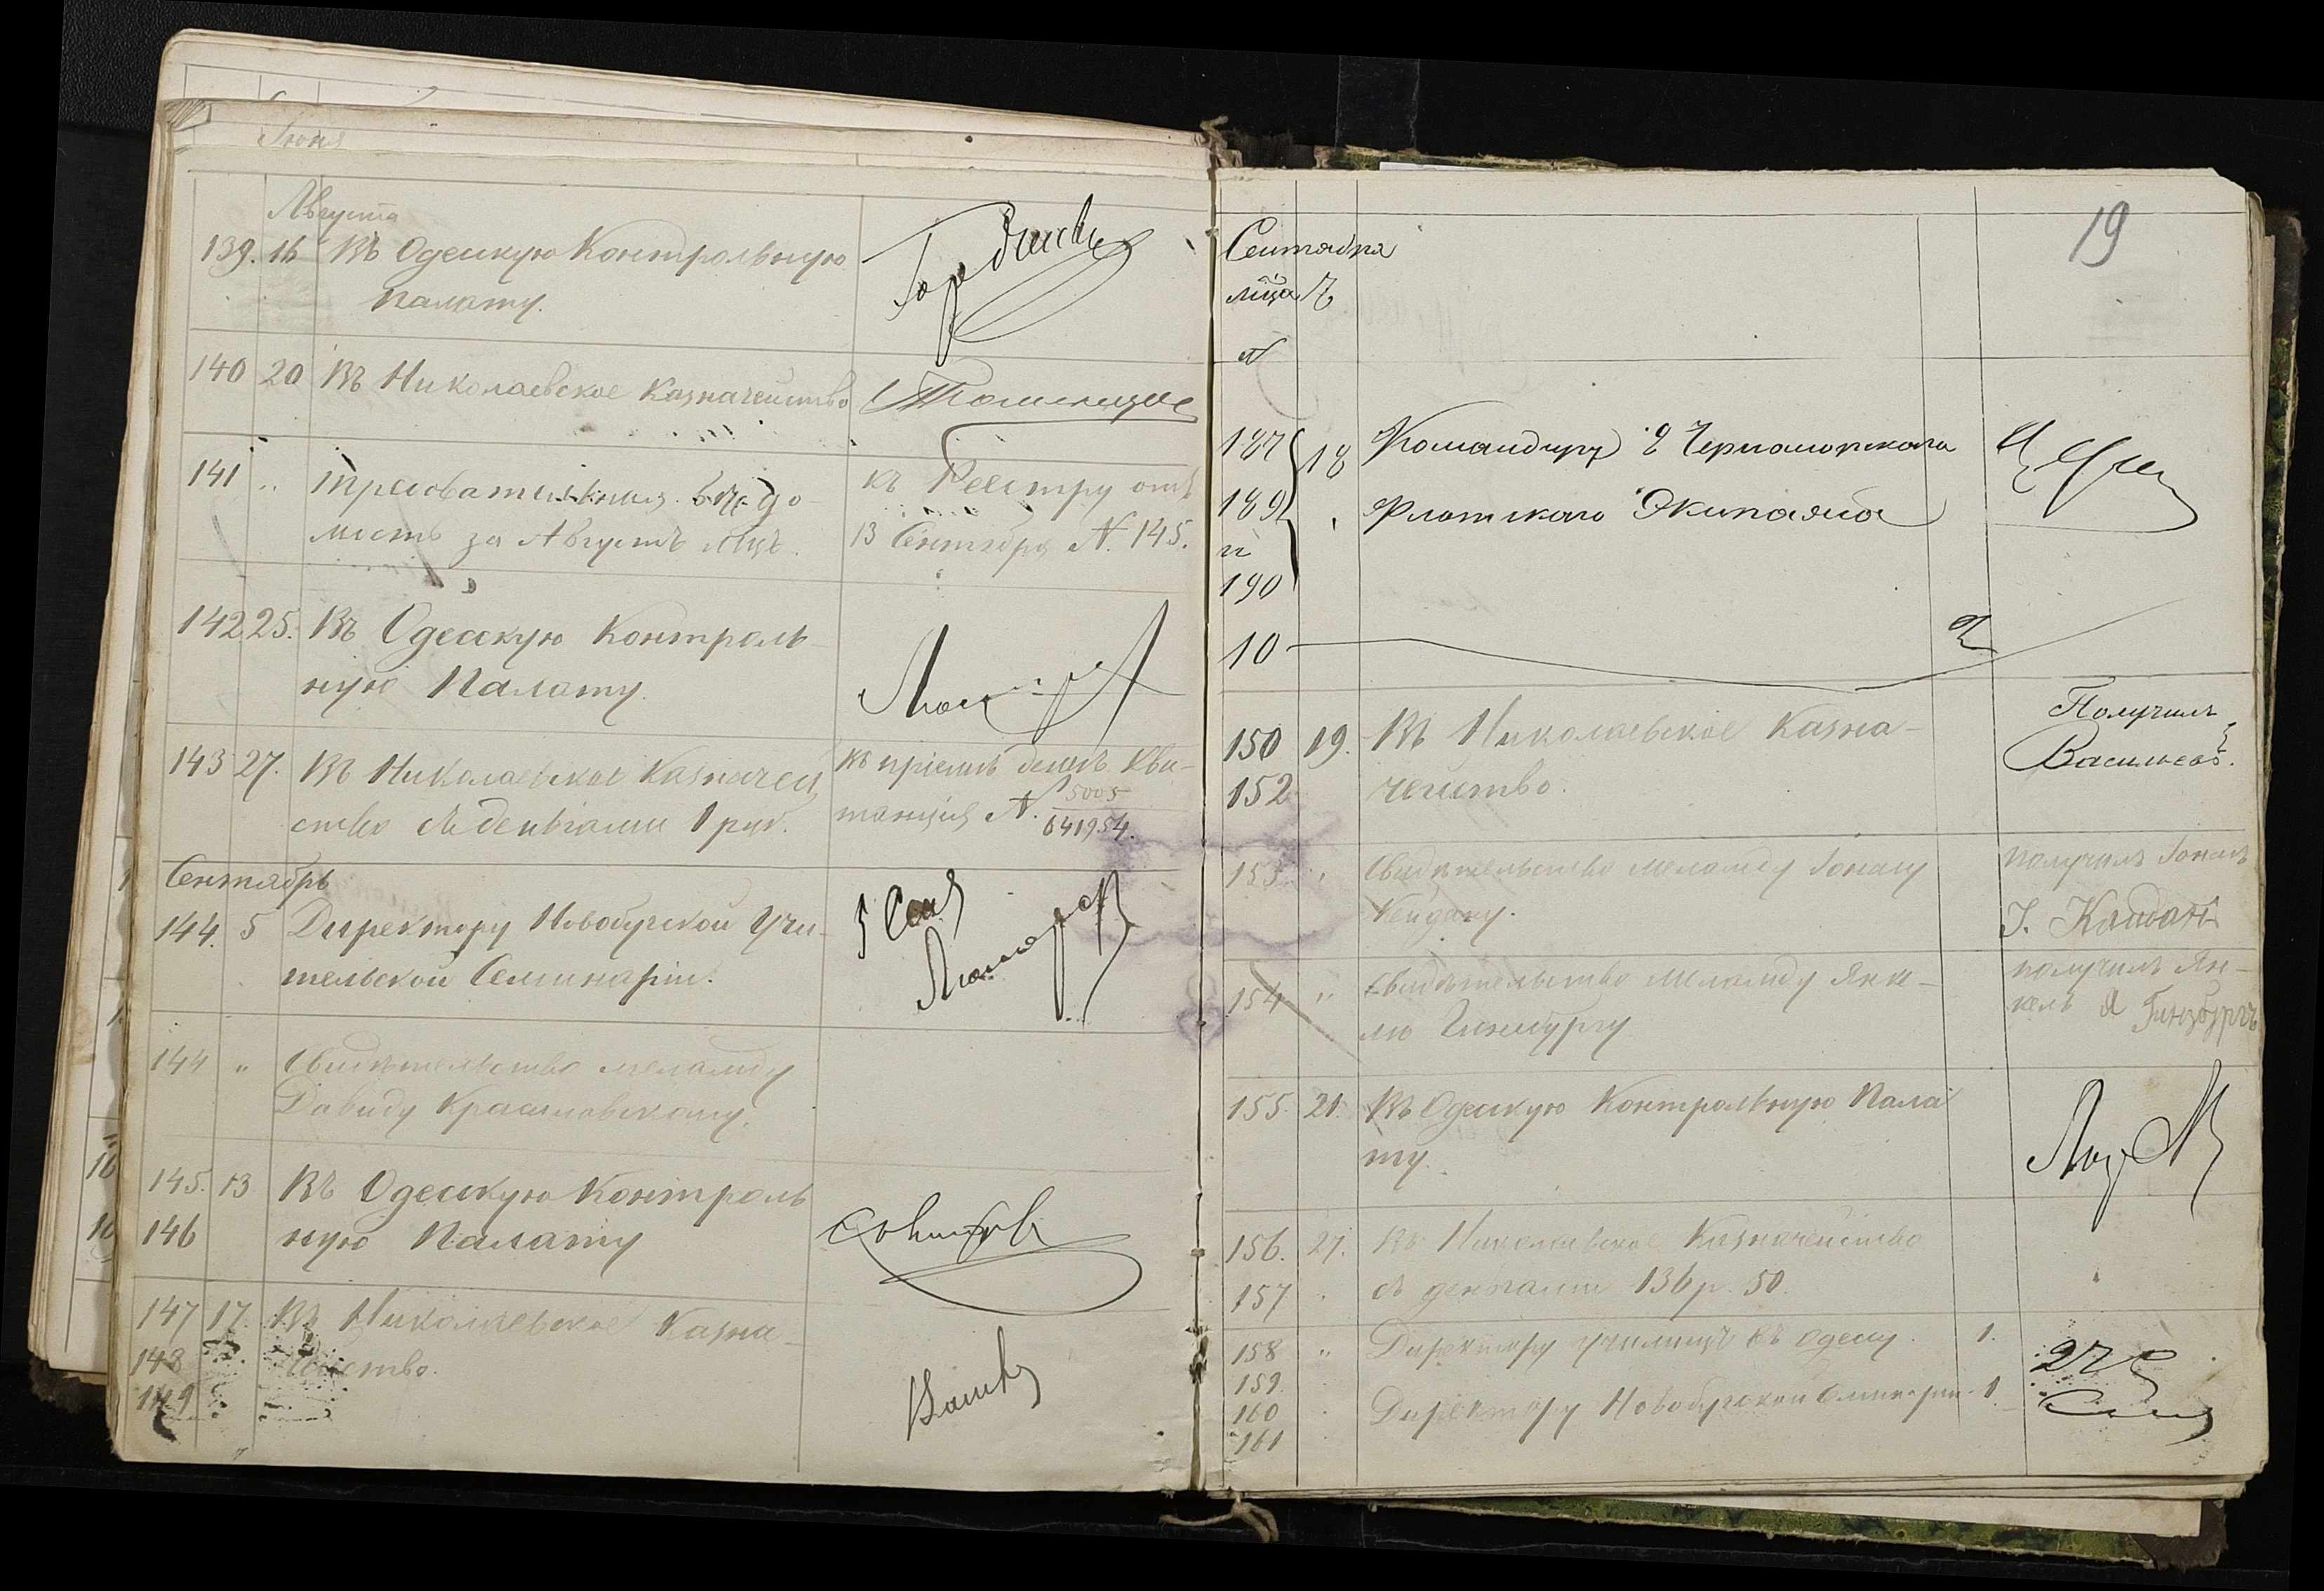 Іюня
Августа
139. 16 Въ Одесскую Контрольную
Палату.
140 20 Въ Николаевское Казначейство
141 „ Требовательная ведо-
мость за Августъ мцъ.
къ Реестру отъ
13 Сентября N. 145.
142 25. Въ Одесскую Контроль
ную Палату.
143 27. Въ Николаевское Казначей
ство съ деньгами 1 руб.
къ пріемѣ денегъ Кви-
танція N. 5005
641954.
Сентябрь
144. 5 Директору Новобугской Учи-
тельской Семинаріи.
5 Сен
144 „ Свидѣтельство меламду
Давиду Красновскому.
145. 13 Въ Одесскую Контроль
146 ную Палату
147 17. Въ Николаевское Казна-
148 чейство.
149
19
Сентября
мца
N
187 18 Командиру 2 Черноморскаго
189 Флотскаго Экипажа
и
190
10
150 19. Въ Николаевское Казна-
152 чейство.
Получилъ
Васильевъ.
153 „ Свидѣтельство меламду Іонасу
Кейдану.
получилъ Іонасъ
І. Кайданъ
154 „ Свидѣтельство меламду Янке-
лю Гинзбургу
получилъ Ян-
кель Я Гинзбургъ
155. 21. Въ Одесскую Контрольную Пала
ту.
156. 27. Въ Николаевское Казначейство
157 съ деньгами 136 р. 50.
158 „ Директору училищъ въ Одессу. 1.
159.
160 Директору Новобугской Семинаріи. 1
161
27